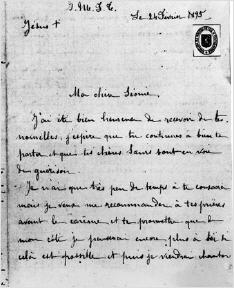 J.M.J.T.
Jésus † Le 24 Février 1895
Ma chère Léonie,
J'ai été bien heureuse de recevoir de tes
nouvelles, j'espère que tu continues à bien te
porter et que tes chères Sœurs sont en voie
de guérison.
Je n'ai que très peu de temps à te consacrer
mais je veux me recommander à tes prières
avant le carême et te promettre que de
mon côté je penserai encore plus à toi si
cela est possible et puis je viendrai chanter